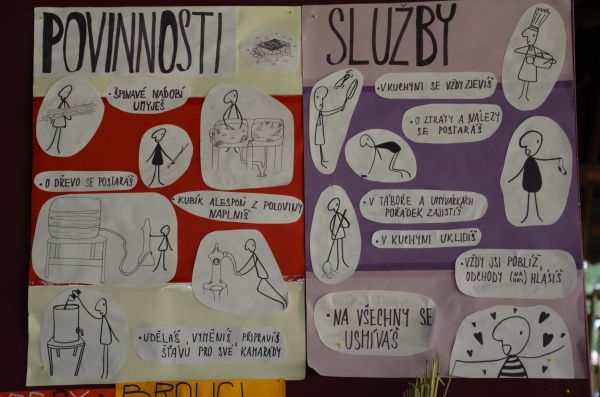 POVINNOSTI
• ŠPINAVÉ NÁDOBÍ
UMYJEŠ
• O DŘEVO SE POSTARÁŠ
• KUBÍK ALESPOŇ Z POLOVINY
NAPLNÍŠ
• UDĚLÁŠ, VYMĚNÍŠ, PŘIPRAVÍŠ
ŠŤÁVU PRO SVÉ KAMARÁDY
SLUŽBY
• V KUCHYNI SE VŽDY ZJEVÍŠ
• O ZTRÁTY A NÁLEZY
SE POSTARÁŠ
• V TÁBOŘE A UMÝVÁRKÁCH
POŘÁDEK ZAJISTÍŠ
• V KUCHYNI UKLIDÍŠ
• VŽDY JSI POBLÍŽ,
ODCHODY HLÁSÍŠ
• NA VŠECHNY SE
USMÍVÁŠ
BROUCI